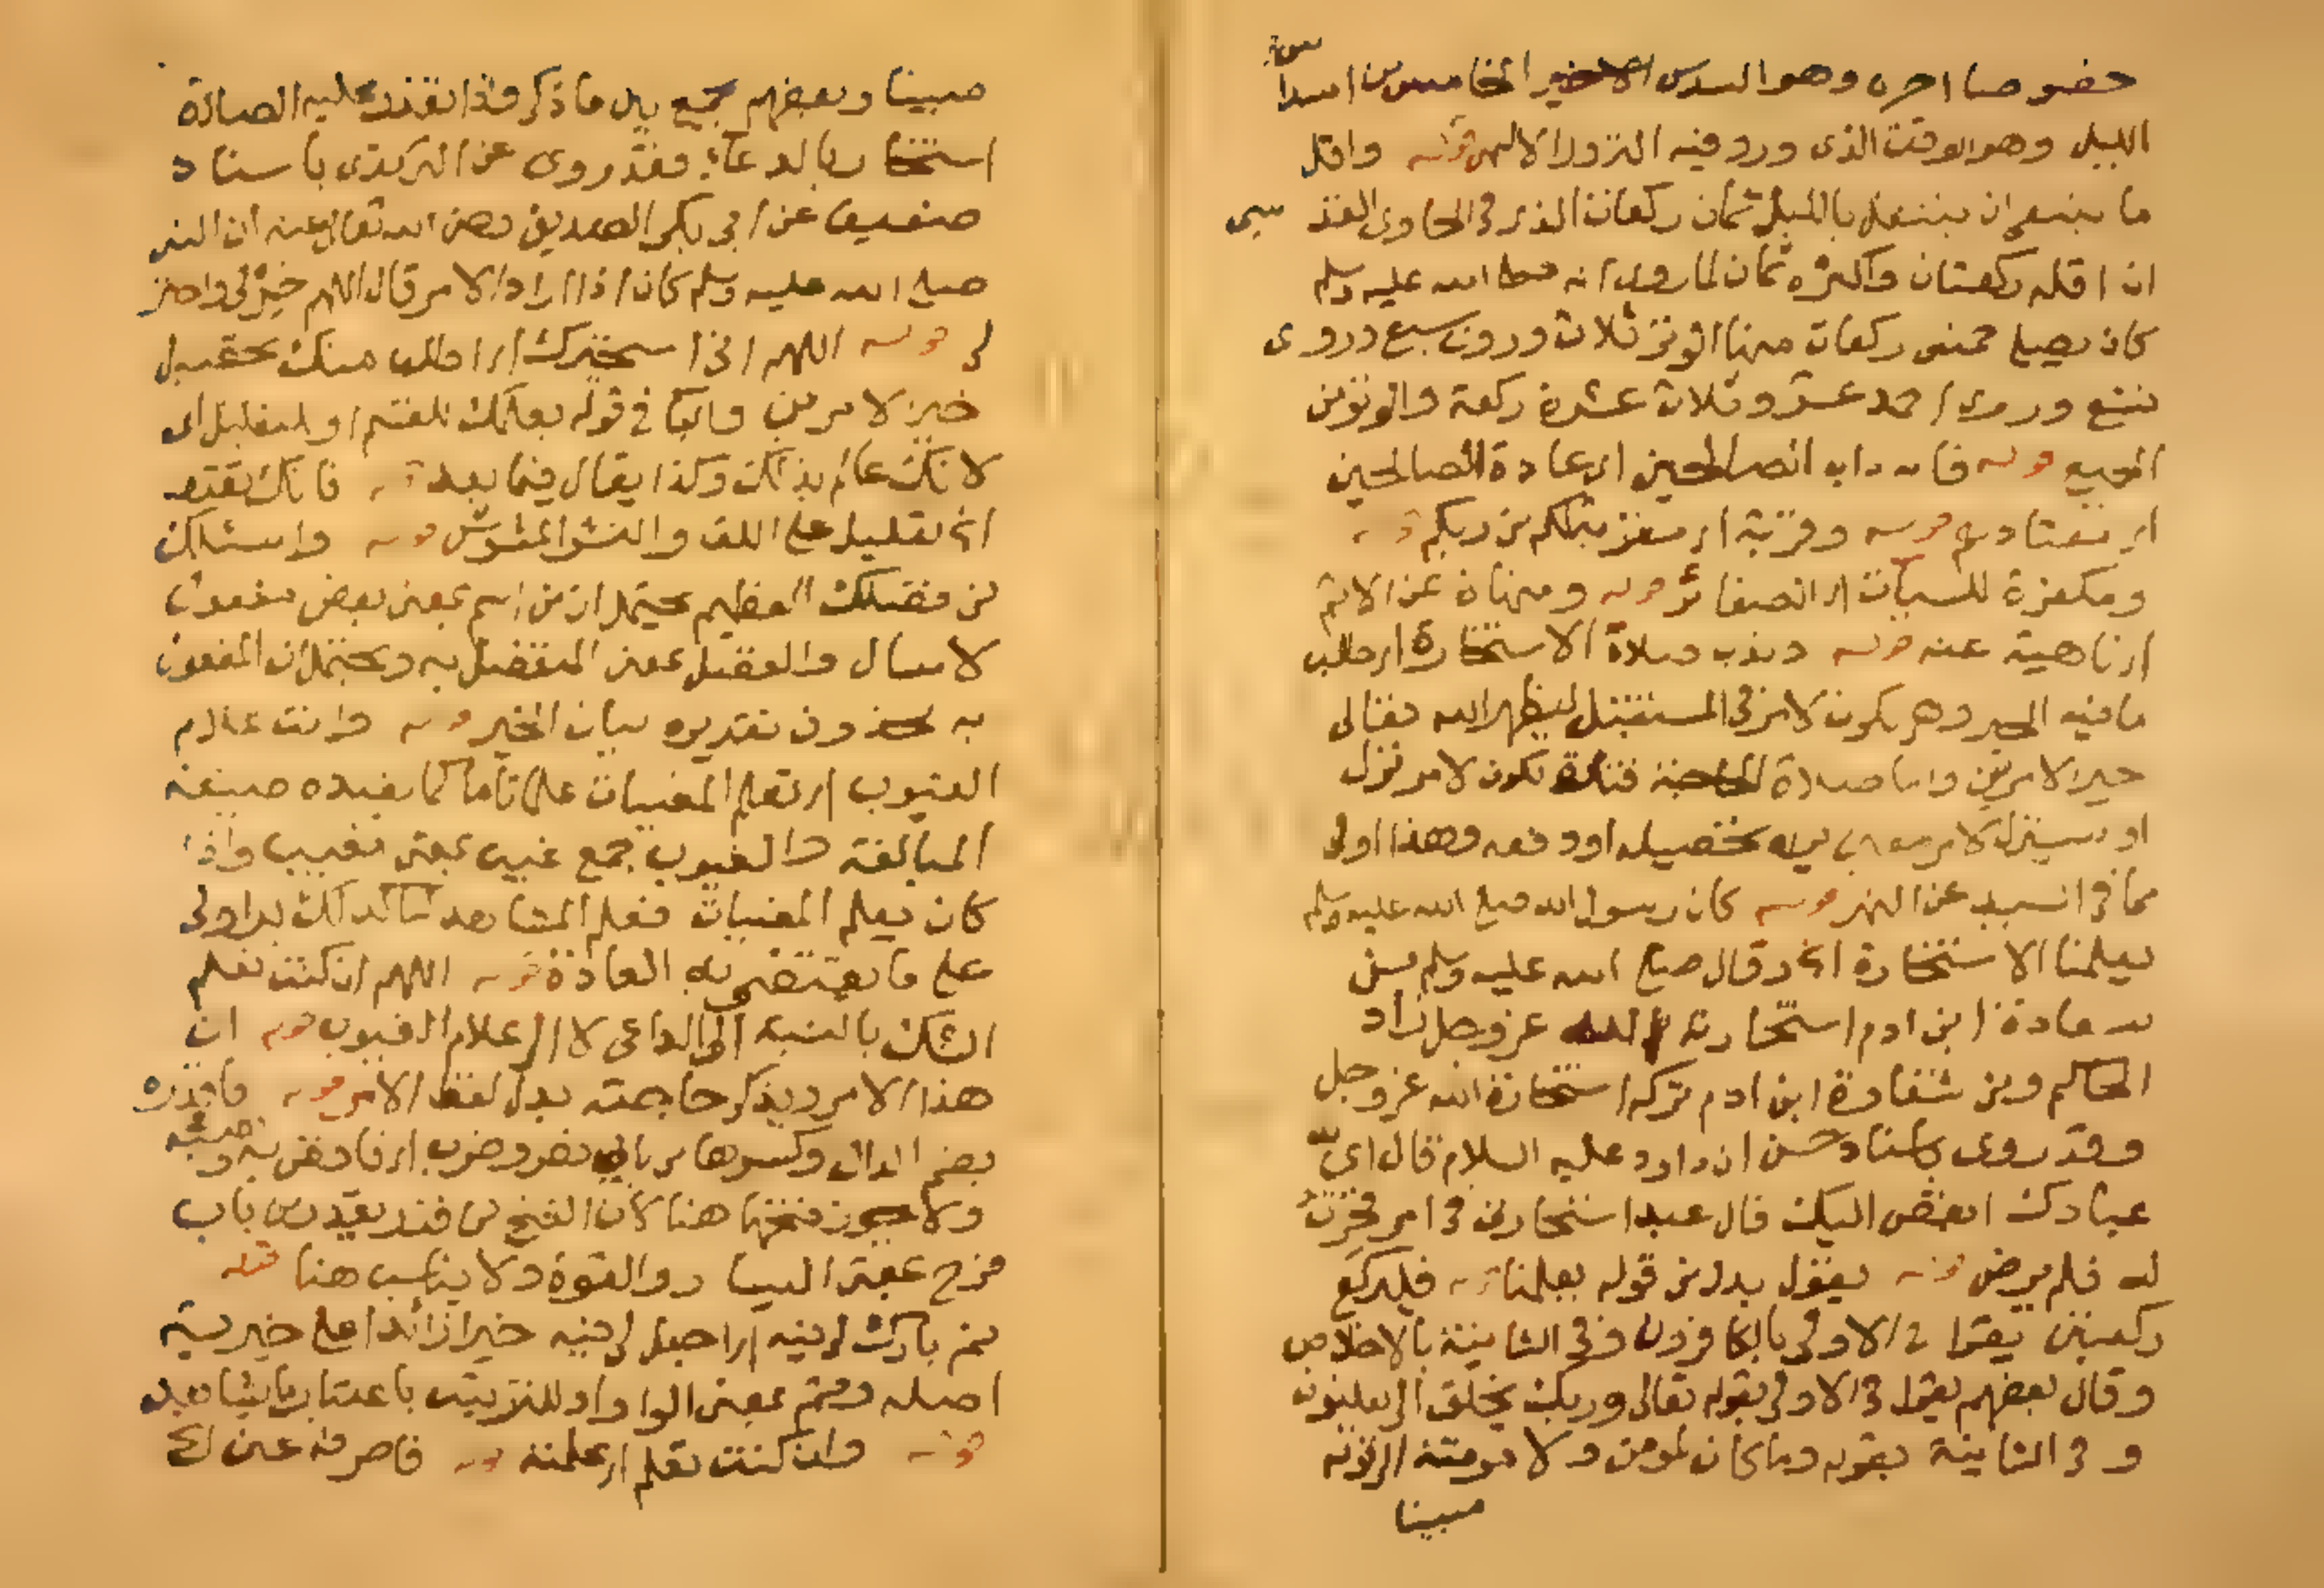 خصوصا اخره وهو السدس الخامس من اسداس
الليل وهو الوقت الذى ورد فيه النزول الالهى قوله واقل
ما ينبغى ان يتنفل بالليل ثمان ركعات الذى فى الحاوى القدسى
ان اقله ركعتان واكثره ثمان لما روى انه صلى الله عليه وسلم
كان يصلى خمس ركعات منها الوتر ثلاث وروى سبع وروى
تسع وروى احد عشر وثلاث عشرة ركعة والوتر من
الجميع قوله فانه داب الصالحين اى عادة الصالحين
اى قوله وقربة اى من ربكم قوله
ومكفرة للسيات اى الصغائر قوله ومنهاة عن الاثم
اى ناهية عنه قوله وندب صلاة الاستخارة اى طلب
ما فيه الخير وهى تكون لامر فى المستقبل ليظهر الله تعالى
خير الامرين واما صلاة الحاجة فتارة تكون لامر نزل
او سينزل لامر يريد تحصيله او دفعه وهذا اولى
مما فى السيد عن النهر قوله كان رسول الله صلى الله عليه وسلم
يعلمنا الاستخارة الخ وقال صلى الله عليه وسلم من
سعادة ابن ادم استخارته الله عز وجل زاد
الحاكم ومن شقاوة ابن ادم تركه استخارة الله عز وجل
وقد روى باسناد حسن ان داود عليه السلام قال اى
عبادك ابغض اليك قال عبد استخارنى فى امر فخرت
له فلم يرض قوله يقول بدل من قوله يعلمنا قوله فليركع
ركعتين يقرا فى الاولى بالكافرون وفى الثانية بالاخلاص
وقال بعضهم يقرا فى الاولى بقوله تعالى وربك يخلق الى يعلنون
وفى الثانية بقوله وما كان لمومن ولا مومنة الى قوله
مبينا
مبينا وبعضهم يجمع بين ما ذكر واذا تعذر عليه الصلاة
استخار بالدعاء فقد روى عن الترمذى باسناد
ضعيف عن ابى بكر الصديق رضى الله تعالى عنه ان النبى
صلى الله عليه وسلم كان اذا اراد الامر قال اللهم خر لى واختر
لى قوله اللهم انى استخيرك اى اطلب منك تحصيل
خير الامرين والبا فى قوله بعلمك للقسم او للتعليل اى
لانك عالم بذلك وكذا يقال فيما بعد قوله فانك تقدر
الخ تعليل على اللف والنشر المشوش قوله واسئلك
من فضلك العظيم يحتمل ان من اسم بمعنى بعض مفعول
لاسال والفضل بمعنى المتفضل به ويحتمل ان المفعول
به محذوف تقديره بيان الخير قوله وانت علام
الغيوب اى تعلم المغيبات علما تاما كما يفيده صيغة
المبالغة والغيوب جمع غيب بمعنى مغيب واذا
كان يعلم المغيبات فعلم المشاهد كذلك بل اولى
على ما يقتضى به العادة قوله اللهم ان كنت تعلم
الشك بالنسبة الى الداعى لا الى علام الغيوب قوله ان
هذا الامر ويذكر حاجته بدل لفظ الامر قوله فاقدره
بضم الدال وكسرها من بابى نصر وضرب اى
ولا يجوز فتحها هنا لان الفتح من باب
فرح بمعنى اليسار والقوة ولا يناسب هنا قوله
ثم بارك لى فيه اى اجعل لى فيه خيرا زائدا على خيرية
اصله وثم بمعنى الواو او للترتيب باعتبار
قوله وان كنت تعلم اى علمته قوله فاصرفه عنى الخ